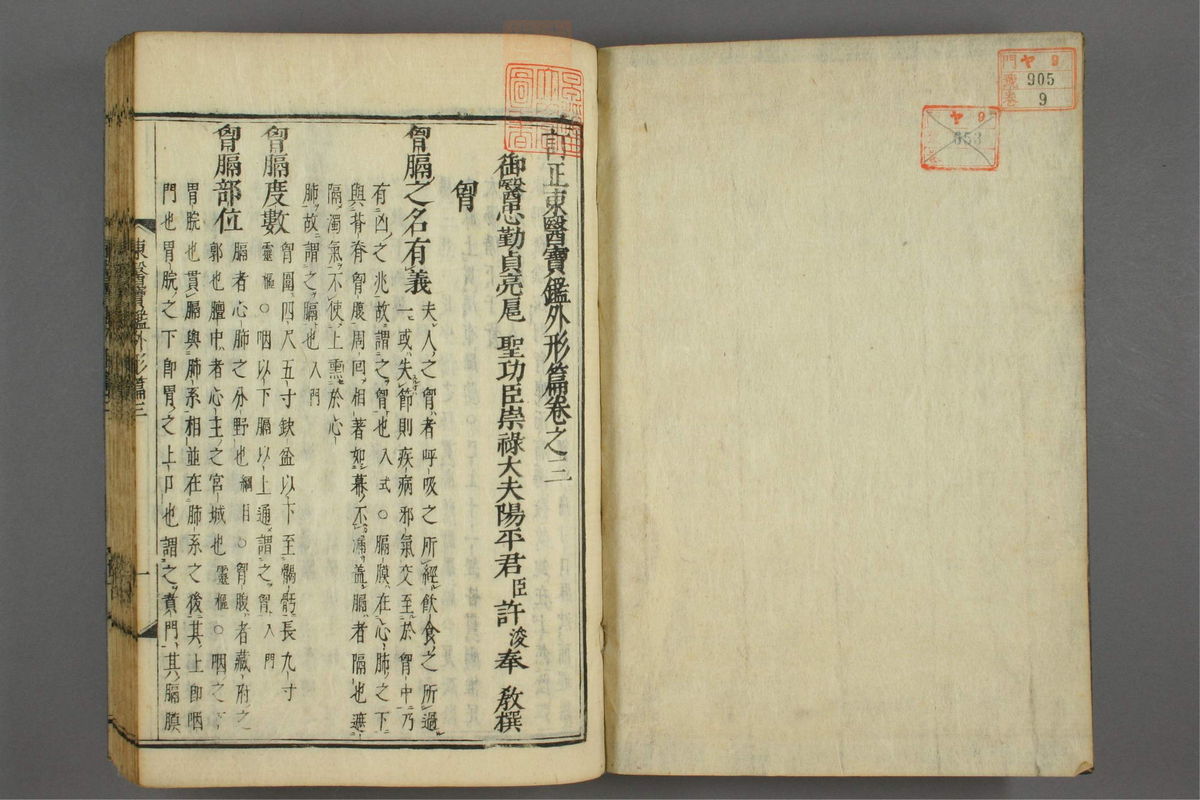 訂正東醫寶鑑外形篇卷之三
御醫忠勤貞亮扈 聖功臣崇祿大夫陽平君臣許浚奉 教撰
胷
胷膈之名有義 夫人之胷者呼吸之所經飮食之所過
一或失節則疾病邪氣交至於胷中乃
有凶之兆故謂之胷也入式○膈膜在心肺之下
與脊脅胷腹周回相著如幕不漏蓋膈者隔也遮
隔濁氣不使上熏於心
肺故謂之膈也入門
胷膈度數 胷圍四尺五寸缺盆以下至𩩲骬長九寸
靈樞○咽以下膈以上通謂之胷入門
胷膈部位 膈者心肺之分野也綱目○胷腹者藏府之
郭也膻中者心主之宮城也靈樞○咽之下
胃脘也貫膈與肺系相並在肺系之後其上卽咽
門也胃脘之下卽胃之上口也謂之賁門其膈膜
東醫寶鑑外形篇三
一
門 ヤ9
號 905
卷 9
ヤ9
653